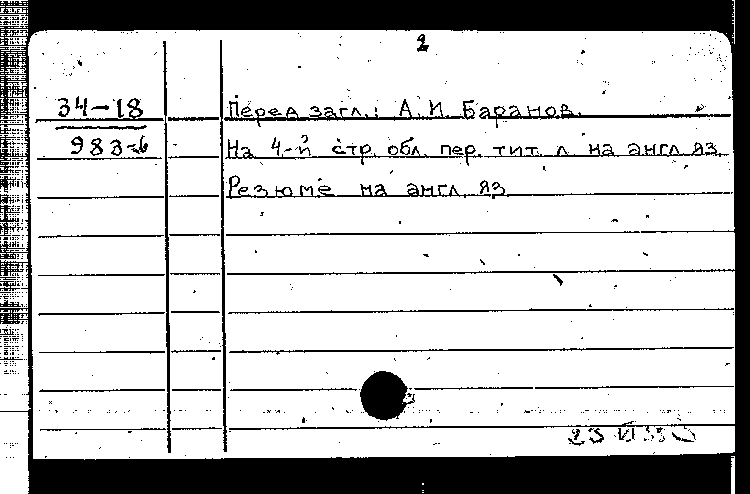 2
34-18
983-6
Перед загл.: А. И. Баранов.
На 4-й стр. обл. пер. тит. л. на англ. яз.
Резюме на англ. яз.